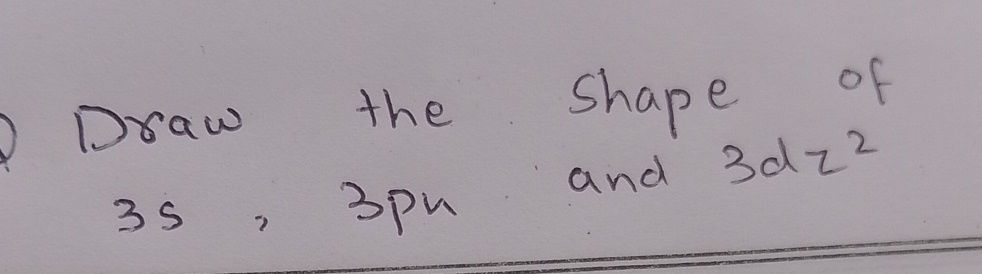 Draw the shape of
3s, 3px and 3dz²